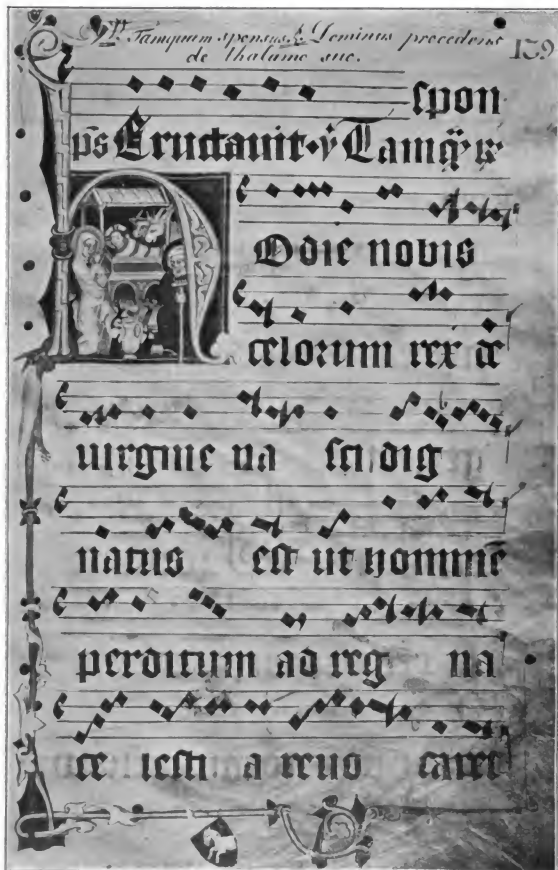 ℣. Tamquam sponsus ℟. Dominus procedens
de thalamo suo.
139
spon
ps̄ Eructauit · v̄ Tamq̄ℨ
Odie nobis
celorum rex de
uirgine na sci dig
natus est ut homine̅
perditum ad reg na
ce lesti a reuo caret